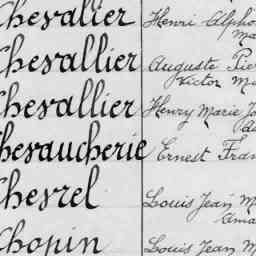 Chevalier Henri Alpho
Ma
Chevallier Auguste Pie
Victor Ma
Chevallier Henry Marie Jo
Chevaucherie Ernest Fran
Chevrel Louis Jean M
Ama
Chopin Louis Jean M